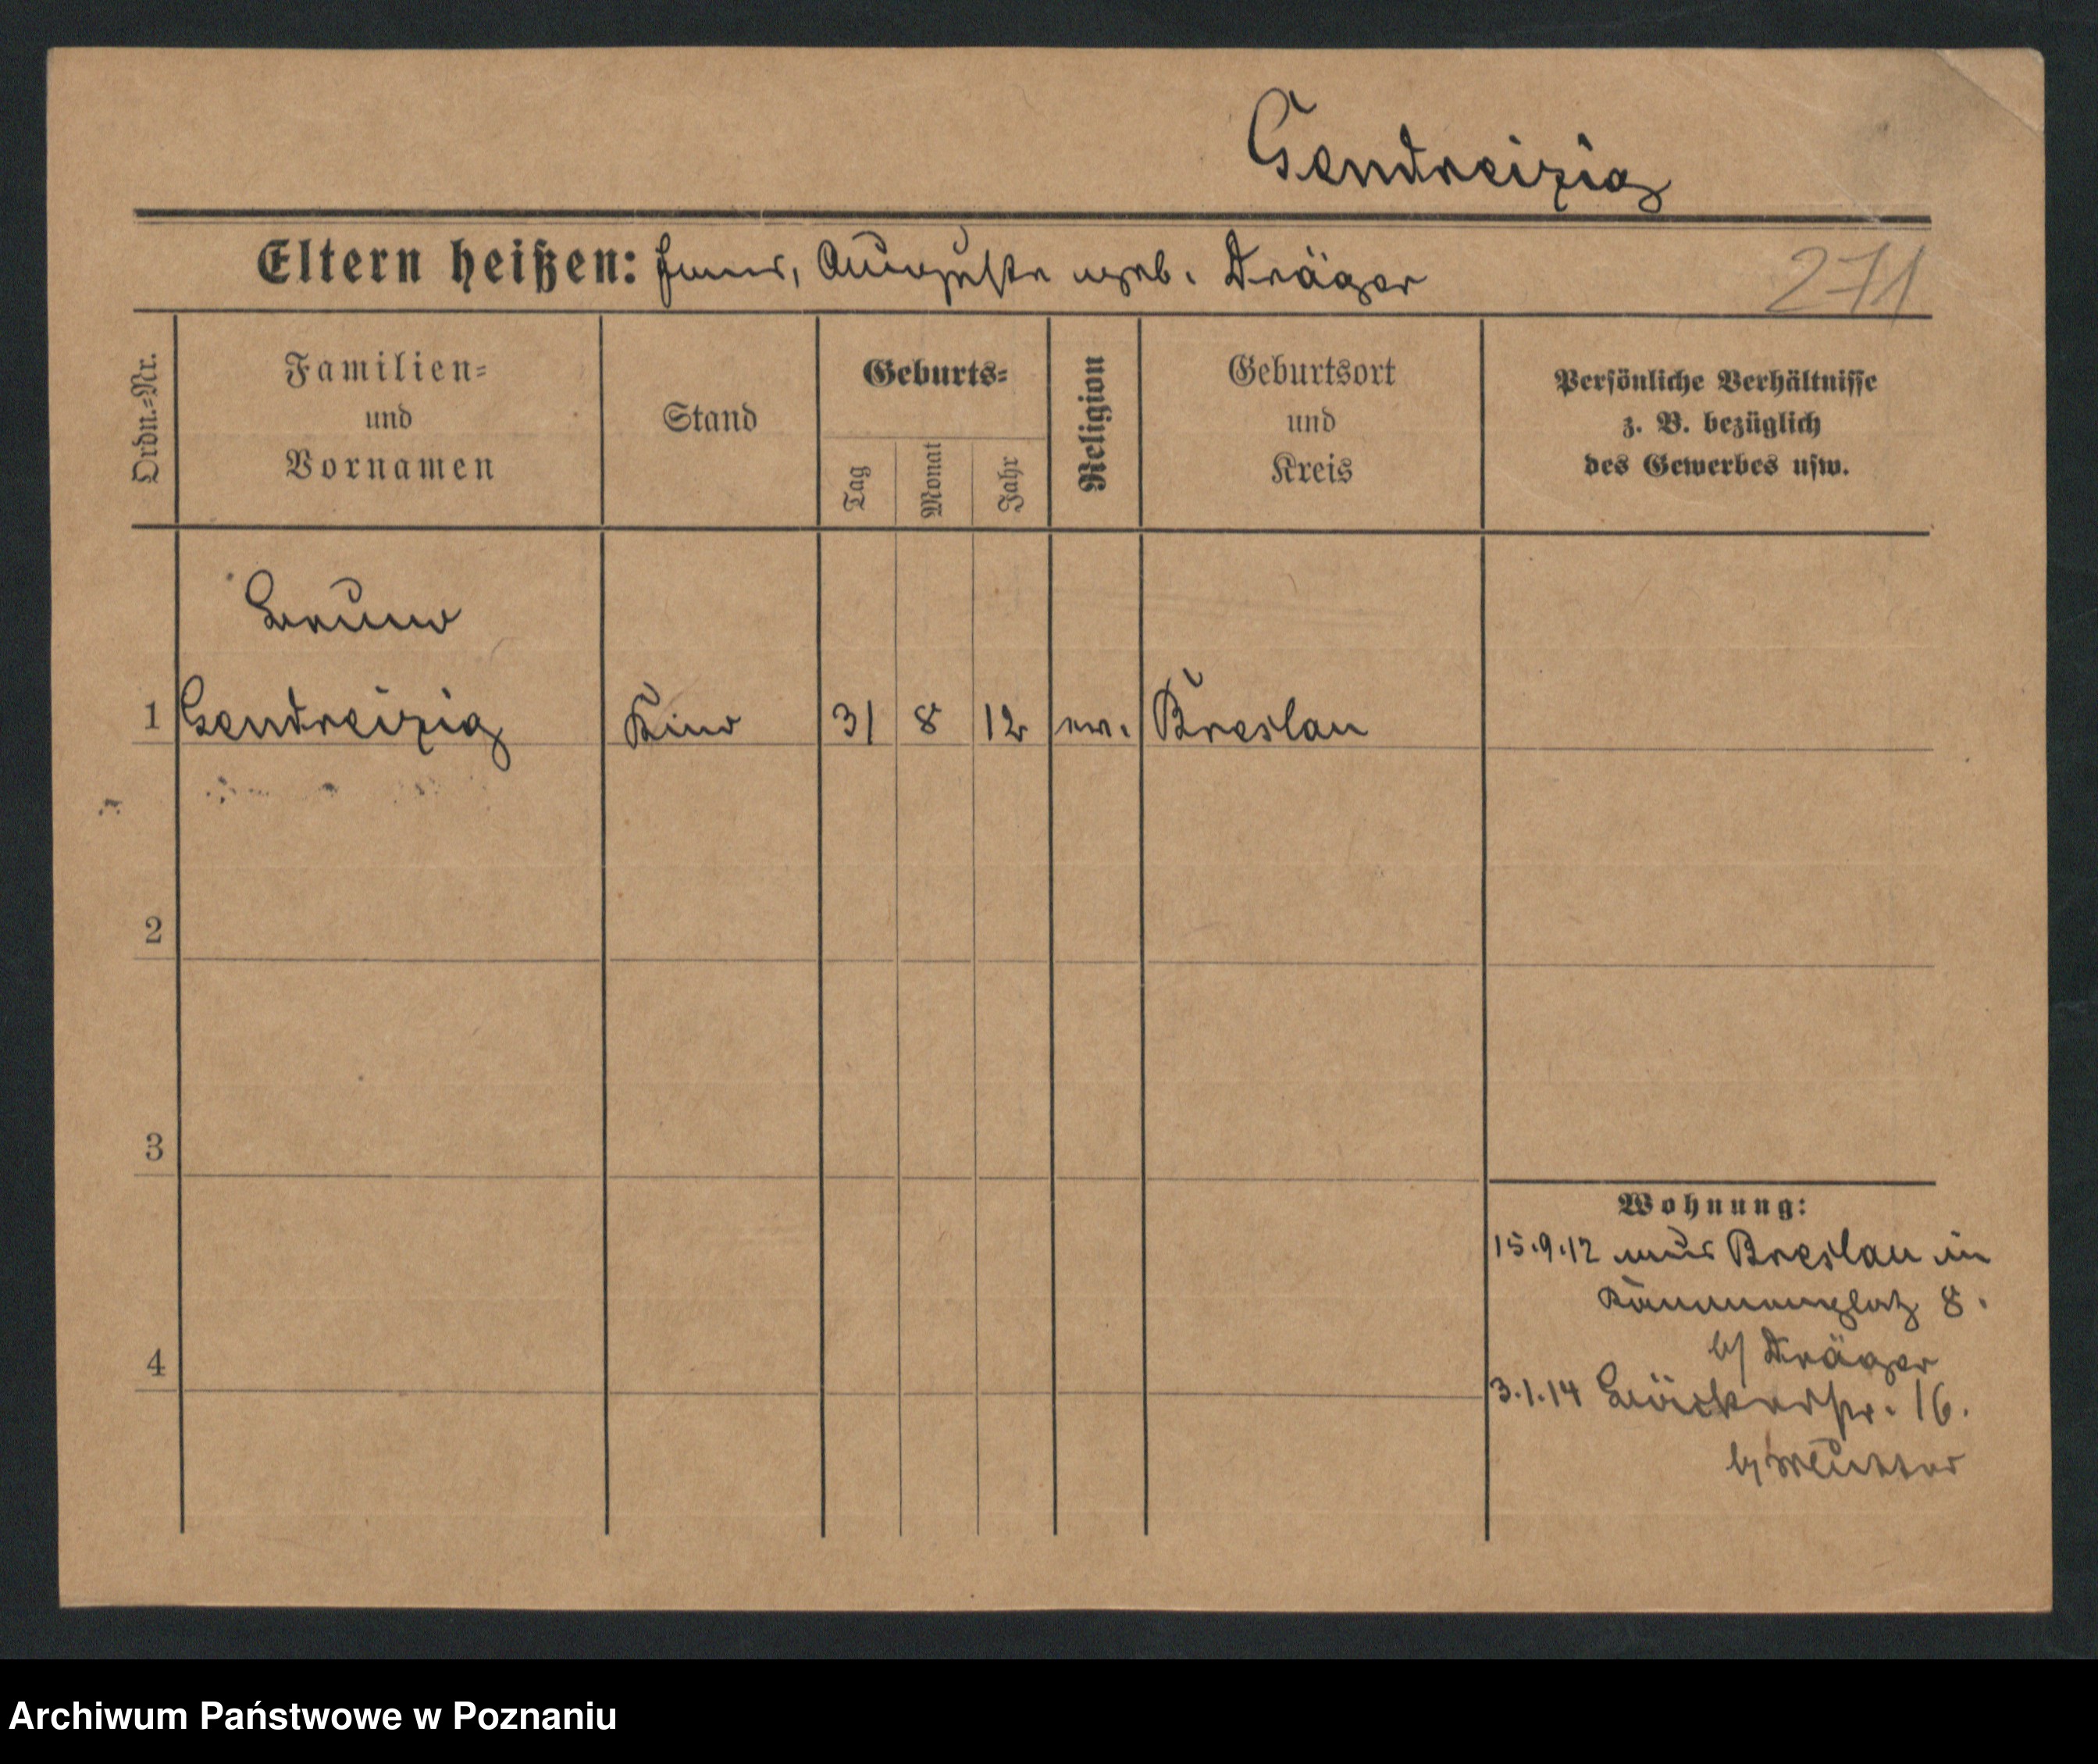 Gendreizig
Eltern heißen: Franz, Auguste geb. Dräger
271
Ordn.=Nr.
Familien=
und
Vornamen
Stand
Geburts=
Tag
Monat
Jahr
Religion
Geburtsort
und
Kreis
Persönliche Verhältnisse
z. B. bezüglich
des Gewerbes usw.
Bruno
1 Gendreizig Kind 31 8 12 ev. Breslau
2
3
4
Wohnung:
15.9.12 aus Breslau in
8.
b/ Dräger
3.1.14 Bäckerstr. 16.
b/ Mutter
Archiwum Państwowe w Poznaniu